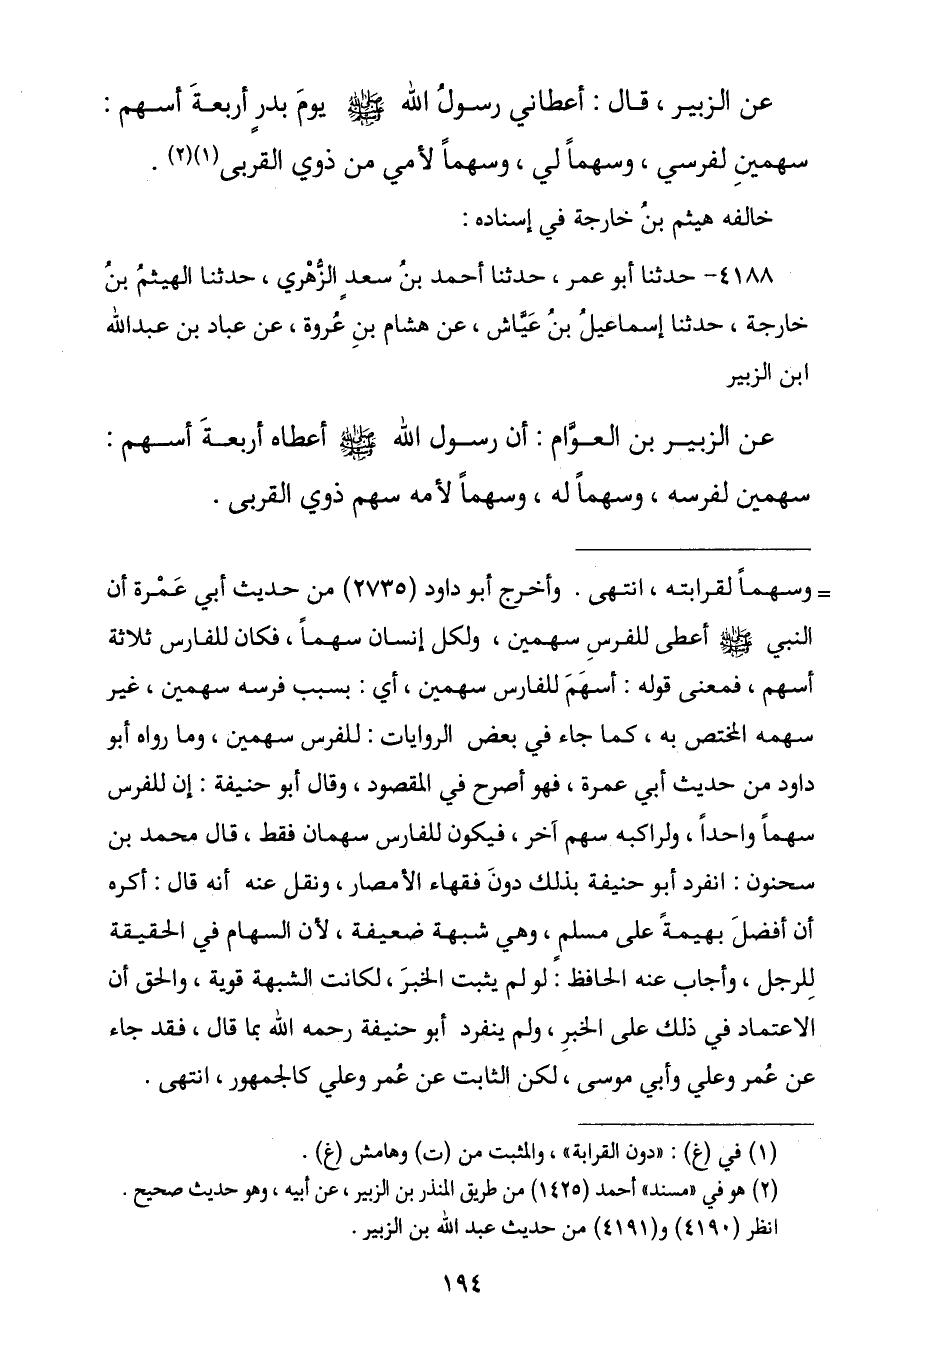 عن الزبير ، قال : أعطاني رسولُ الله ﷺ يومَ بدرٍ أربعةَ أسهم :
سهمينِ لفرسي ، وسهماً لي ، وسهماً لأمي من ذوي القربى(١)(٢) .
خالفه هيثم بنُ خارجة في إسناده :
٤١٨٨- حدثنا أبو عمر ، حدثنا أحمد بنُ سعدٍ الزُّهْري ، حدثنا الهيثمُ بنُ
خارجة ، حدثنا إسماعيلُ بنُ عَيَّاش ، عن هشام بنِ عُروة ، عن عباد بن عبدالله
ابن الزبير
عن الزبير بن العوَّام : أن رسول الله ﷺ أعطاه أربعةَ أسهم :
سهمين لفرسه ، وسهماً له ، وسهماً لأمه سهم ذوي القربى .
= وسهماً لقرابته ، انتهى . وأخرج أبو داود (٢٧٣٥) من حديث أبي عَمْرة أن
النبي ﷺ أعطى للفرسِ سهمين ، ولكل إنسان سهماً ، فكان للفارس ثلاثة
أسهم ، فمعنى قوله : أسهَمَ للفارس سهمين ، أي : بسبب فرسه سهمين ، غير
سهمه المختص به ، كما جاء في بعض الروايات : للفرس سهمين ، وما رواه أبو
داود من حديث أبي عمرة ، فهو أصرح في المقصود ، وقال أبو حنيفة : إن للفرس
سهماً واحداً ، ولراكبه سهم آخر ، فيكون للفارس سهمان فقط ، قال محمد بن
سحنون : انفرد أبو حنيفة بذلك دونَ فقهاء الأمصار ، ونقل عنه أنه قال : أكره
أن أفضلَ بهيمةً على مسلمٍ ، وهي شبهة ضعيفة ، لأن السهام في الحقيقة
للرجلِ ، وأجاب عنه الحافظ : لو لم يثبت الخبرَ ، لكانت الشبهة قوية ، والحق أن
الاعتماد في ذلك على الخبرِ ، ولم ينفرد أبو حنيفة رحمه الله بما قال ، فقد جاء
عن عُمر وعلي وأبي موسى ، لكن الثابت عن عُمر وعلي كالجمهور ، انتهى .
(١) في (غ) : «دون القرابة» ، والمثبت من (ت) وهامش (غ) .
(٢) هو في «مسند» أحمد (١٤٢٥) من طريق المنذر بن الزبير ، عن أبيه ، وهو حديث صحيح .
انظر (٤١٩٠) و(٤١٩١) من حديث عبد الله بن الزبير .
١٩٤